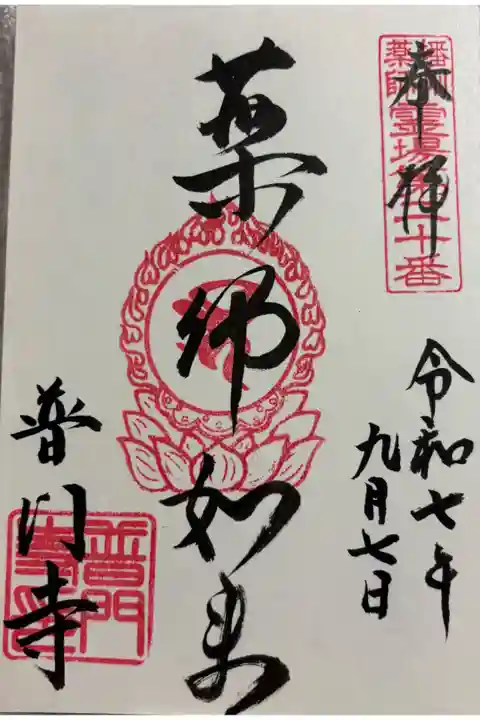 奉拝
薬師霊場第二十番
令和七年
九月七日
薬師如来
普門寺
普門